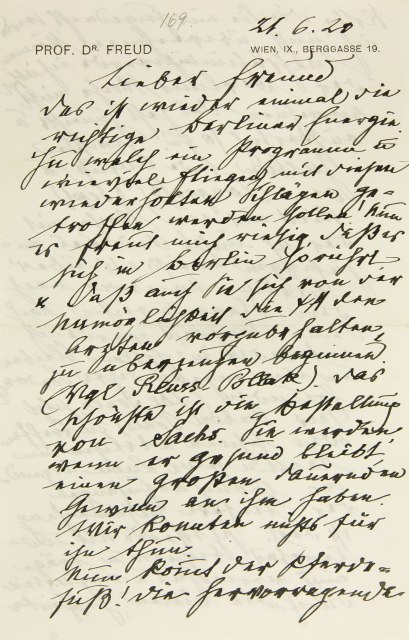 169.
21. 6. 20
PROF. DR. FREUD
WIEN, IX., BERGGASSE 19.
Lieber Freund
Das ist wieder einmal die
richtige Berliner Energie!
welch ein Programm u
wieviel Fliegen mit diesen
wiederholten Schlägen ge-
troffen werden sollen! Nun
es freut mich riesig, daß es
sich in Berlin so rührt
daß auch Sie sich von der
Unmöglichkeit die ΨA den
Ärzten vorzubehalten,
zu überzeugen beginnen
(Vgl Das
Schönste ist die Bestellung
von Sachs. Sie werden
wenn er gesund bleibt,
einen großen dauernden
Gewinn an ihm haben.
Wir konnten nichts für
ihn thun.
Nun komt der Pferde-
fuß! Die hervorragende